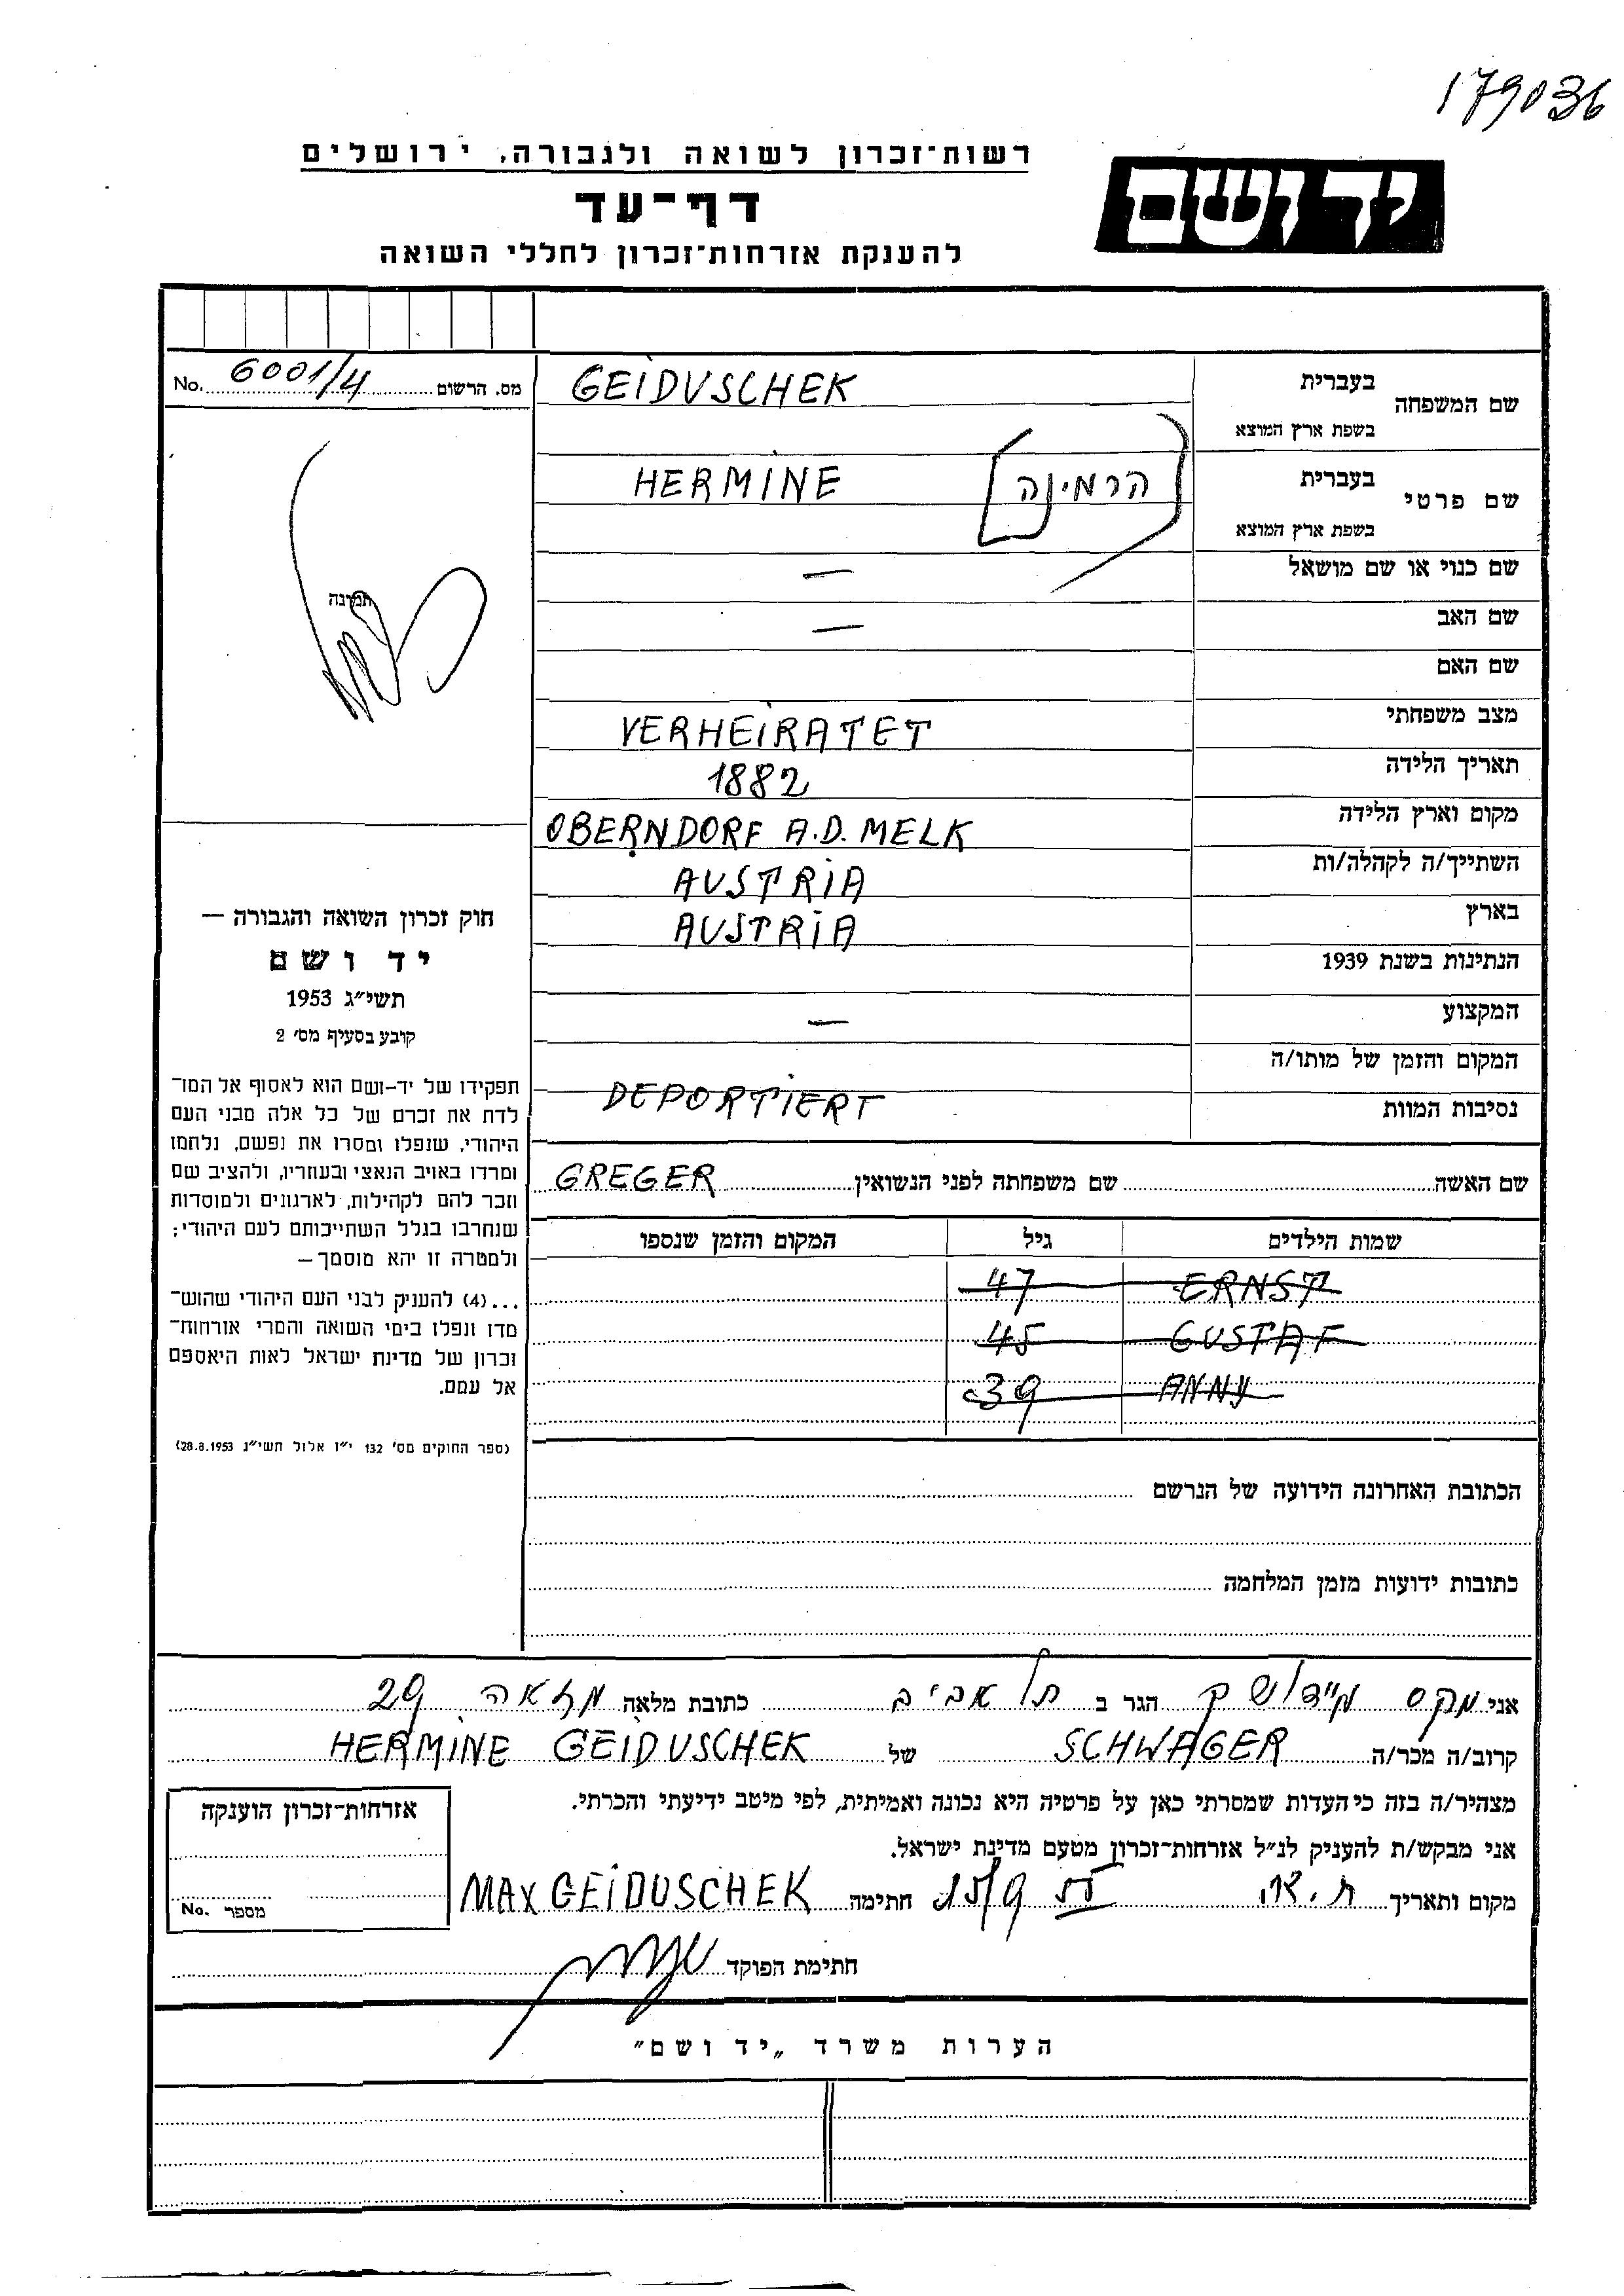 179036
רשות־זכרון לשואה ולגבורה, ירושלים
יד ושם
דף־עד
להענקת אזרחות־זכרון לחללי השואה
מס. הרשום 6001/4 No.
שם המשפחה בעברית GEIDUSCHEK
בשפת ארץ המוצא
שם פרטי בעברית [הרמינה] HERMINE
בשפת ארץ המוצא
שם כנוי או שם מושאל —
שם האב —
שם האם
מצב משפחתי VERHEIRATET
תאריך הלידה 1882
מקום וארץ הלידה OBERNDORF A.D. MELK
השתייך/ה לקהלה/ות AUSTRIA
בארץ AUSTRIA
הנתינות בשנת 1939
המקצוע —
המקום והזמן של מותו/ה
נסיבות המוות DEPORTIERT
תמונה
חוק זכרון השואה והגבורה —
יד ושם
תשי״ג 1953
קובע בסעיף מס׳ 2
תפקידו של יד-ושם הוא לאסוף אל המו־
לדת את זכרם של כל אלה מבני העם
היהודי, שנפלו ומסרו את נפשם, נלחמו
ומרדו באויב הנאצי ובעוזריו, ולהציב שם
וזכר להם לקהילות, לארגונים ולמוסדות
שנחרבו בגלל השתייכותם לעם היהודי;
ולמטרה זו יהא מוסמך —
...(4) להעניק לבני העם היהודי שהוש־
מדו ונפלו בימי השואה והמרי אזרחות־
זכרון של מדינת ישראל לאות היאספם
אל עמם.
(ספר החוקים מס׳ 132 י״ז אלול תשי״ג 28.8.1953)
שם האשה שם משפחתה לפני הנשואין GREGER
שמות הילדים גיל המקום והזמן שנספו
ERNST 47
GUSTAF 45
ANNY 39
הכתובת האחרונה הידועה של הנרשם
כתובות ידועות מזמן המלחמה
אני מקס גיידושק הגר ב תל אביב כתובת מלאה מזאה 29
קרוב/ה מכר/ה SCHWAGER של HERMINE GEIDUSCHEK
מצהיר/ה בזה כי העדות שמסרתי כאן על פרטיה היא נכונה ואמיתית, לפי מיטב ידיעתי והכרתי.
אני מבקש/ת להעניק לנ״ל אזרחות־זכרון מטעם מדינת ישראל.
מקום ותאריך חתימה MAX GEIDUSCHEK
אזרחות־זכרון הוענקה
מספר No.
חתימת הפוקד
הערות משרד „יד ושם”